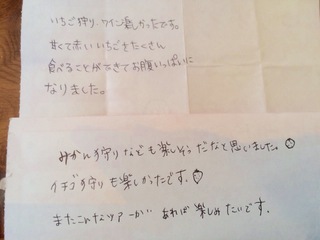 いちご狩り、ワイン楽しかったです。
甘くて赤いいちごをたくさん
食べることができてお腹いっぱいに
なりました。
みかん狩りなども楽しそうだなと思いました。
イチゴ狩りも楽しかったです。
またこんなツアーがあれば楽しみたいです。